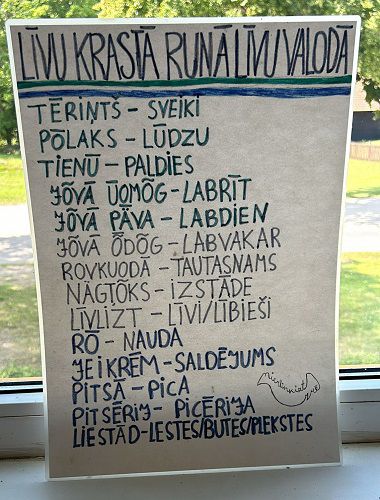 LĪVU KRASTĀ RUNĀ LĪVU VALODĀ
TĒRIŅTŠ – SVEIKI
PŌLAKS – LŪDZU
TIENŪ – PALDIES
JÕVĀ ŪOMÕG – LABRĪT
JÕVĀ PÄVA – LABDIEN
JÕVA ÕDÕG – LABVAKAR
ROVKUODĀ – TAUTASNAMS
NÄGTÕKS – IZSTĀDE
LĪVLIZT – LĪVI/LĪBIEŠI
RŌ – NAUDA
JEIKRĒM – SALDĒJUMS
PITSĀ – PICA
PITSĒRIJ – PICĒRIJA
LIESTĀD – LESTES/BUTES/PLEKSTES